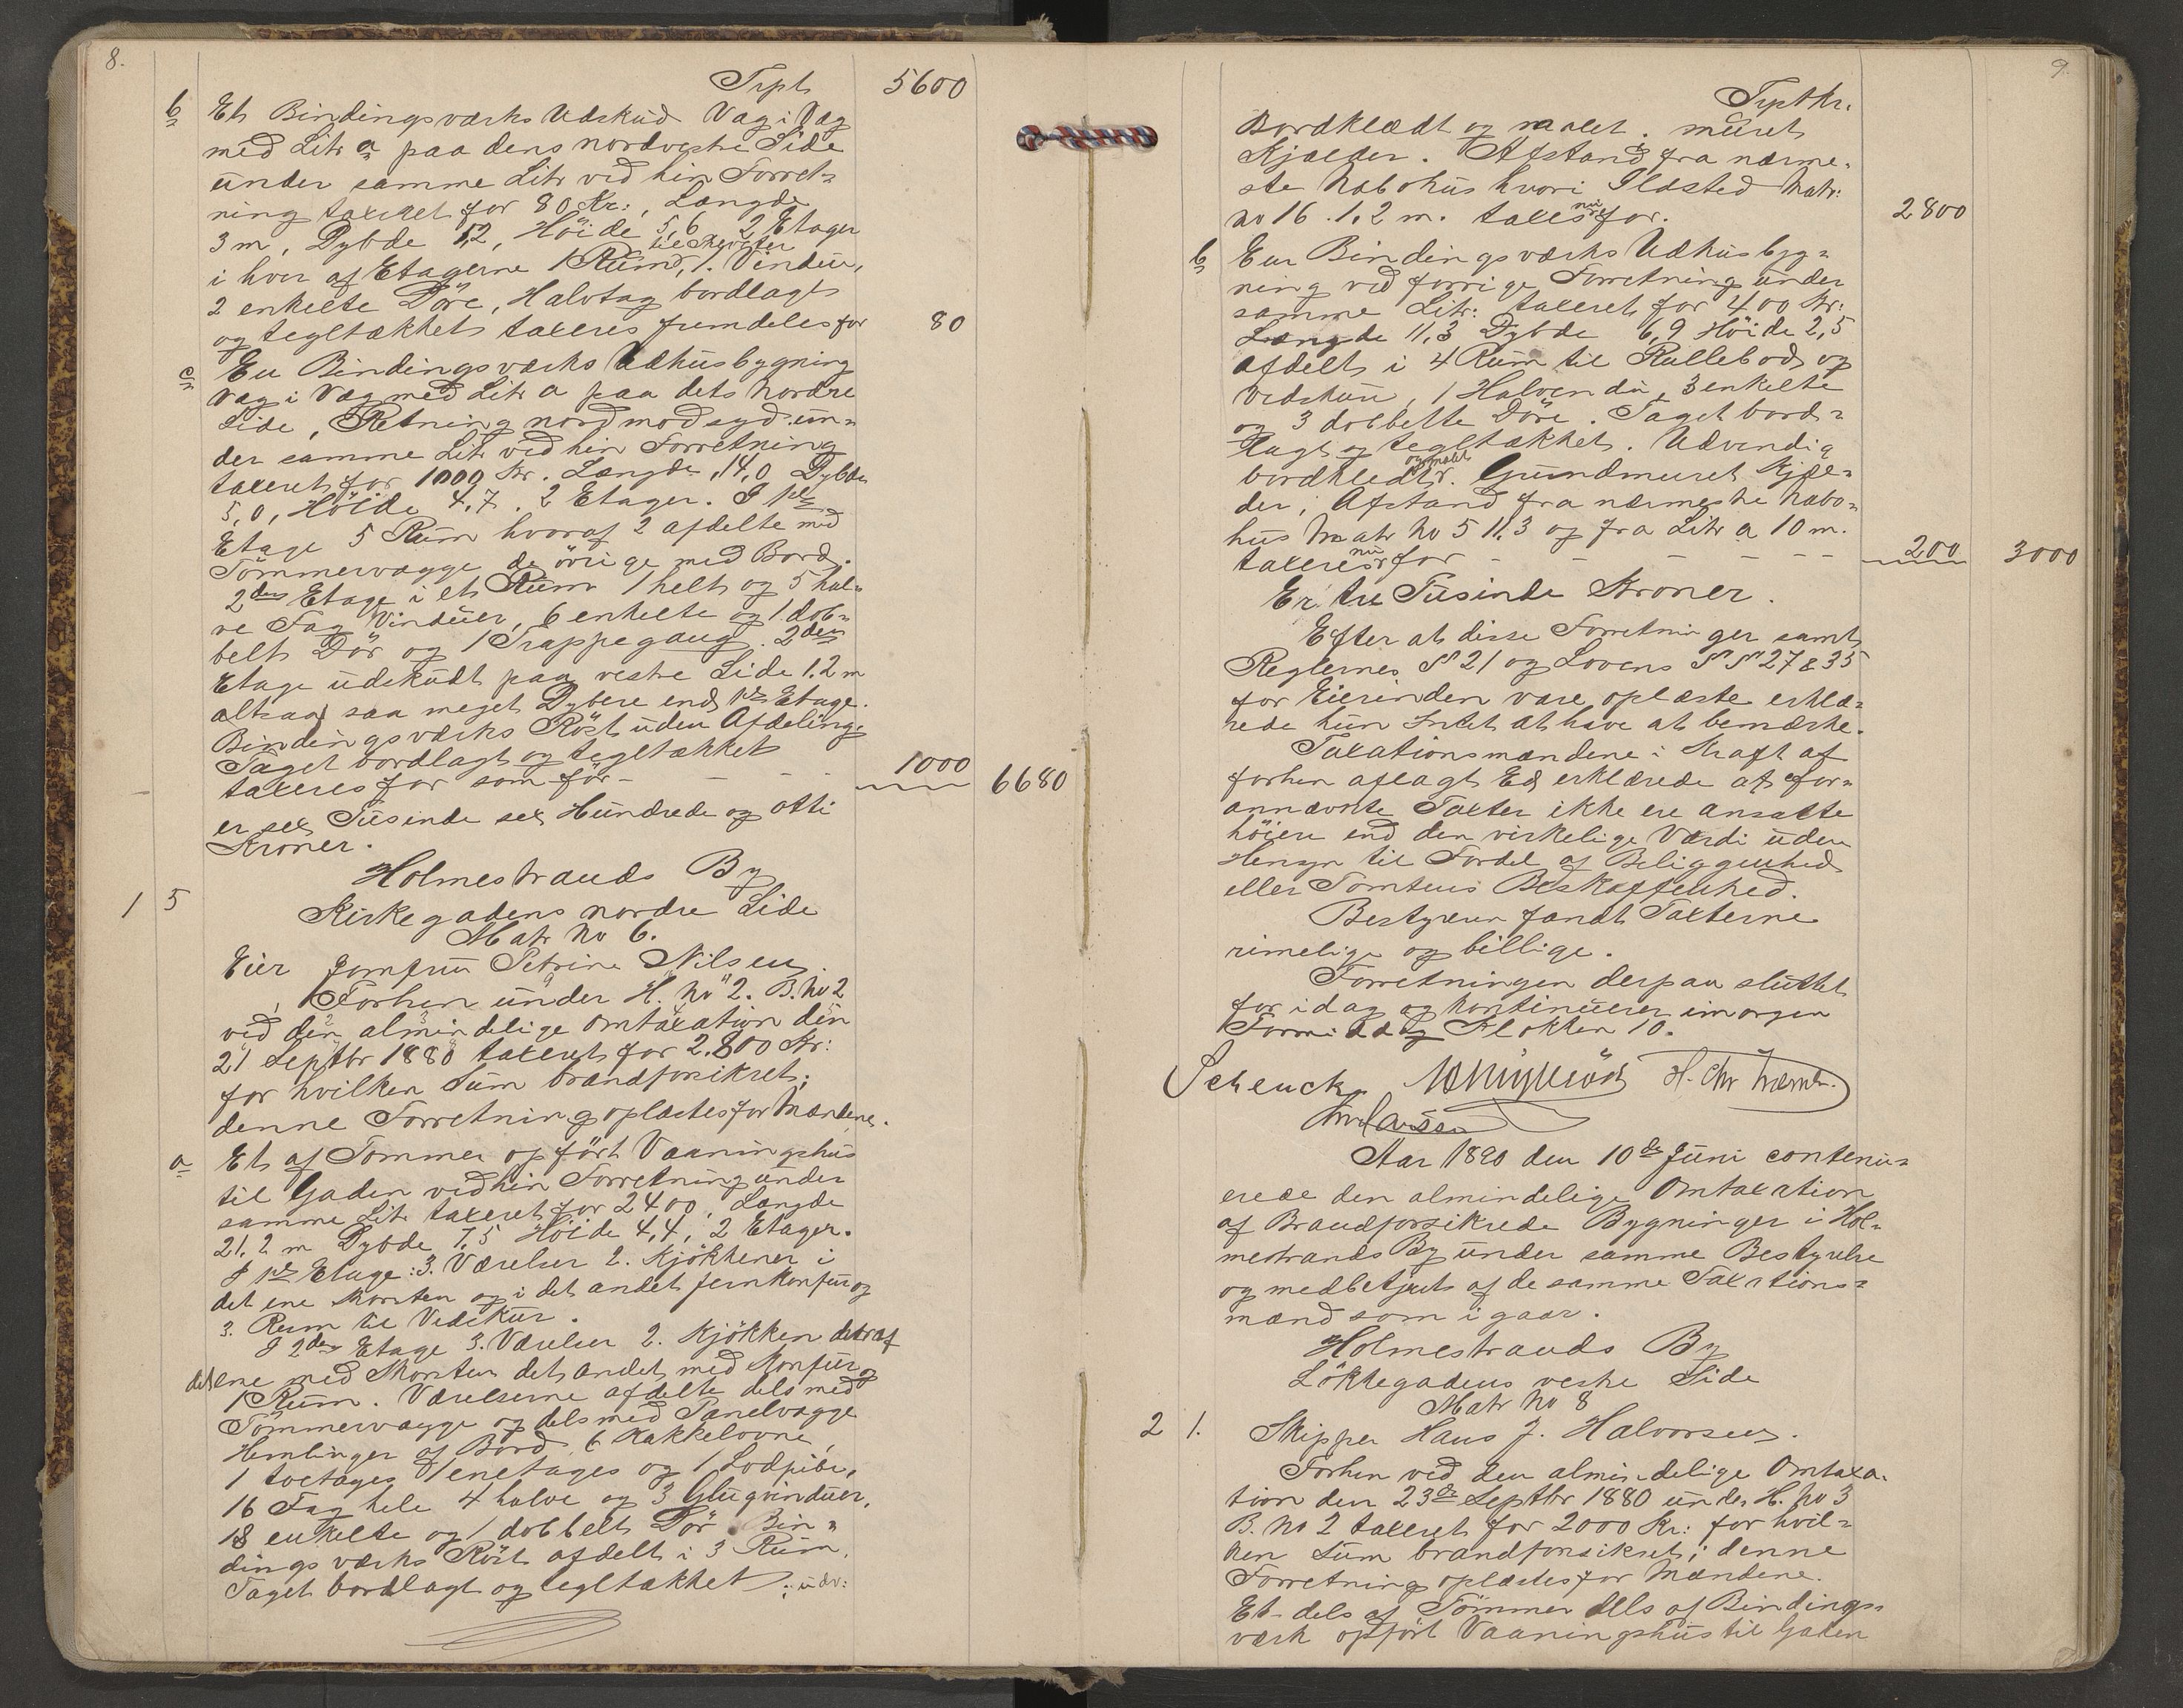 8.
Trpt 5600
b Et Bindingsværks Udskud Væg i Væg
med Litr a paa dens nordvestre Side
under samme Litr ved hin Forret-
ning taxeret for 80 Kr:, Længde
3 m, Dybde 1,2, Höide 5,6 2 Etager
i hver af Etagerne 1 Rum, 1. Vindu,
2 enkelte Döre, Halvtag bordlagt
og tegltækket taxeres fremdeles for 80
c En Bindingsværks Udhusbygning
Væg i Væg med Litr a paa dets Nordre
Side, Retning nord mod syd un-
der samme Litr ved hin Forretning
taxeret for 1000 Kr. Længde 14,0 Dybde
5,0, Höide 4,7. 2 Etager. I 1ste
Etage 5 Rum hvoraf 2 afdelte med
Tömmervægge de övrige med Bord.
2den Etage i et Rum 1 helt og 5 hal-
ve Fag Vinduer, 6 enkelte og 1 dob-
belt Dör og 1 Trappegang. 2den
Etage udskudt paa vestre Side 1.2 m
altsaa saa meget Dybere end 1ste Etage.
Bindingsværks Röst uden Afdeling
Taget bordlagt og tegltækket
taxeres for som för - - - - 1000 6680
er sex Tusinde sex Hundrede og otti
Kroner.
Holmestrands By
1 5 Kirkegadens nordre Side
Matr No 6.
Eier Jomfru Petrine Nilsen.
Forhen under H. No 2. B. No 2
ved den almindelige Omtaxation den
21 Septbr 1880 taxeret for 2.800 Kr:
for hvilken Sum brandforsikret;
denne Forretning oplæstes for Mændene.
a Et af Tömmer opfört Vaaningshus
til Gaden ved hin Forretning under
samme Litr taxeret for 2400, Længde
21,2 m Dybde 7,5 Höide 4,4, 2 Etager.
I 1ste Etage: 3. Værelser 2. Kjökkener i
det ene Skorsten og i det andet Jernkomfur og
3. Rum til Vedskur.
I 2den Etage 3. Værelser 2. Kjökken deraf
det ene med Skorsten det andet med Komfur og
1 Rum. Værelserne afdelte dels med
Tömmervægge og dels med Panelvægge
Hemlinger af Bord, 6 Kakkelovne,
1 toetages 1 enetages og 1 Lodpibe,
16 Fag hele 4 halve og 3 Glugvinduer,
18 enkelte og 1 dobbelt Dör Bin-
dingsværks Röst afdelt i 3 Rum.
Taget bordlagt og tegltækket; udv:
9.
Trpt Kr.
Bordklædt og malet. muret
Kjælder. Afstand fra nærme-
ste Nabohus hvori Ildsted Matr:
No 16. 1.2 m. taxeres nu for. 2800
b En Bindingsværks Udhusbyg-
ning ved forrige Forretning under
samme Litr: taxeret for 400 Kr:
Længde 11,3 Dybde 6,9 Höide 2,5
afdelt i 4 Rum til Rullebod og
Vedskur, 1 Halvvindu, 3 enkelte
og 3 dobbelte Döre. Taget bord-
lagt og tegltækket. Udvendig
bordklædt og malet. Grundmuret Kjæl-
der, Afstand fra nærmeste Nabo-
hus Matr No 5 11.3 og fra Litr a 10 m.
taxeres nu for - - - - - 200 3000
Er tre Tusinde Kroner.
Efter at disse Forretninger samt
Reglernes § 21 og Lovens §§ 27 & 35
for Eierinden vare oplæste erklæ-
rede hun Intet at have at bemærke.
Taxationsmændene i Kraft af
forhen aflagt Ed erklærede at for-
annævnte Taxter ikke ere ansatte
höiere end den virkelige Værdi uden
Hensyn til Fordel af Beliggenhed
eller Tomtens Beskaffenhed.
Bestyreren fandt Taxterne
rimelige og billige.
Forretningen derpaa sluttet
for idag og kontinuerer imorgen
Formiddag Klokken 10.
Schenck H. Chr
Aar 1890 den 10de Juni contenu-
erede den almindelige Omtaxation
af Brandforsikrede Bygninger i Hol-
mestrands By under samme Bestyrelse
og medbetjent af de samme Taxations-
mænd som i gaar.
Holmestrands By
Löktegadens vestre Side
Matr No 8
2 1. Skipper Hans J. Halvorsen.
Forhen ved den almindelige Omtaxa-
tion den 23de Septbr 1880 under H. No 3
B. No 2 taxeret for 2000 Kr: for hvil-
ken Sum brandforsikret; denne
Forretning oplæstes for Mændene.
Et dels af Tömmer dels af Bindings-
værk opfört Vaaningshus til Gaden